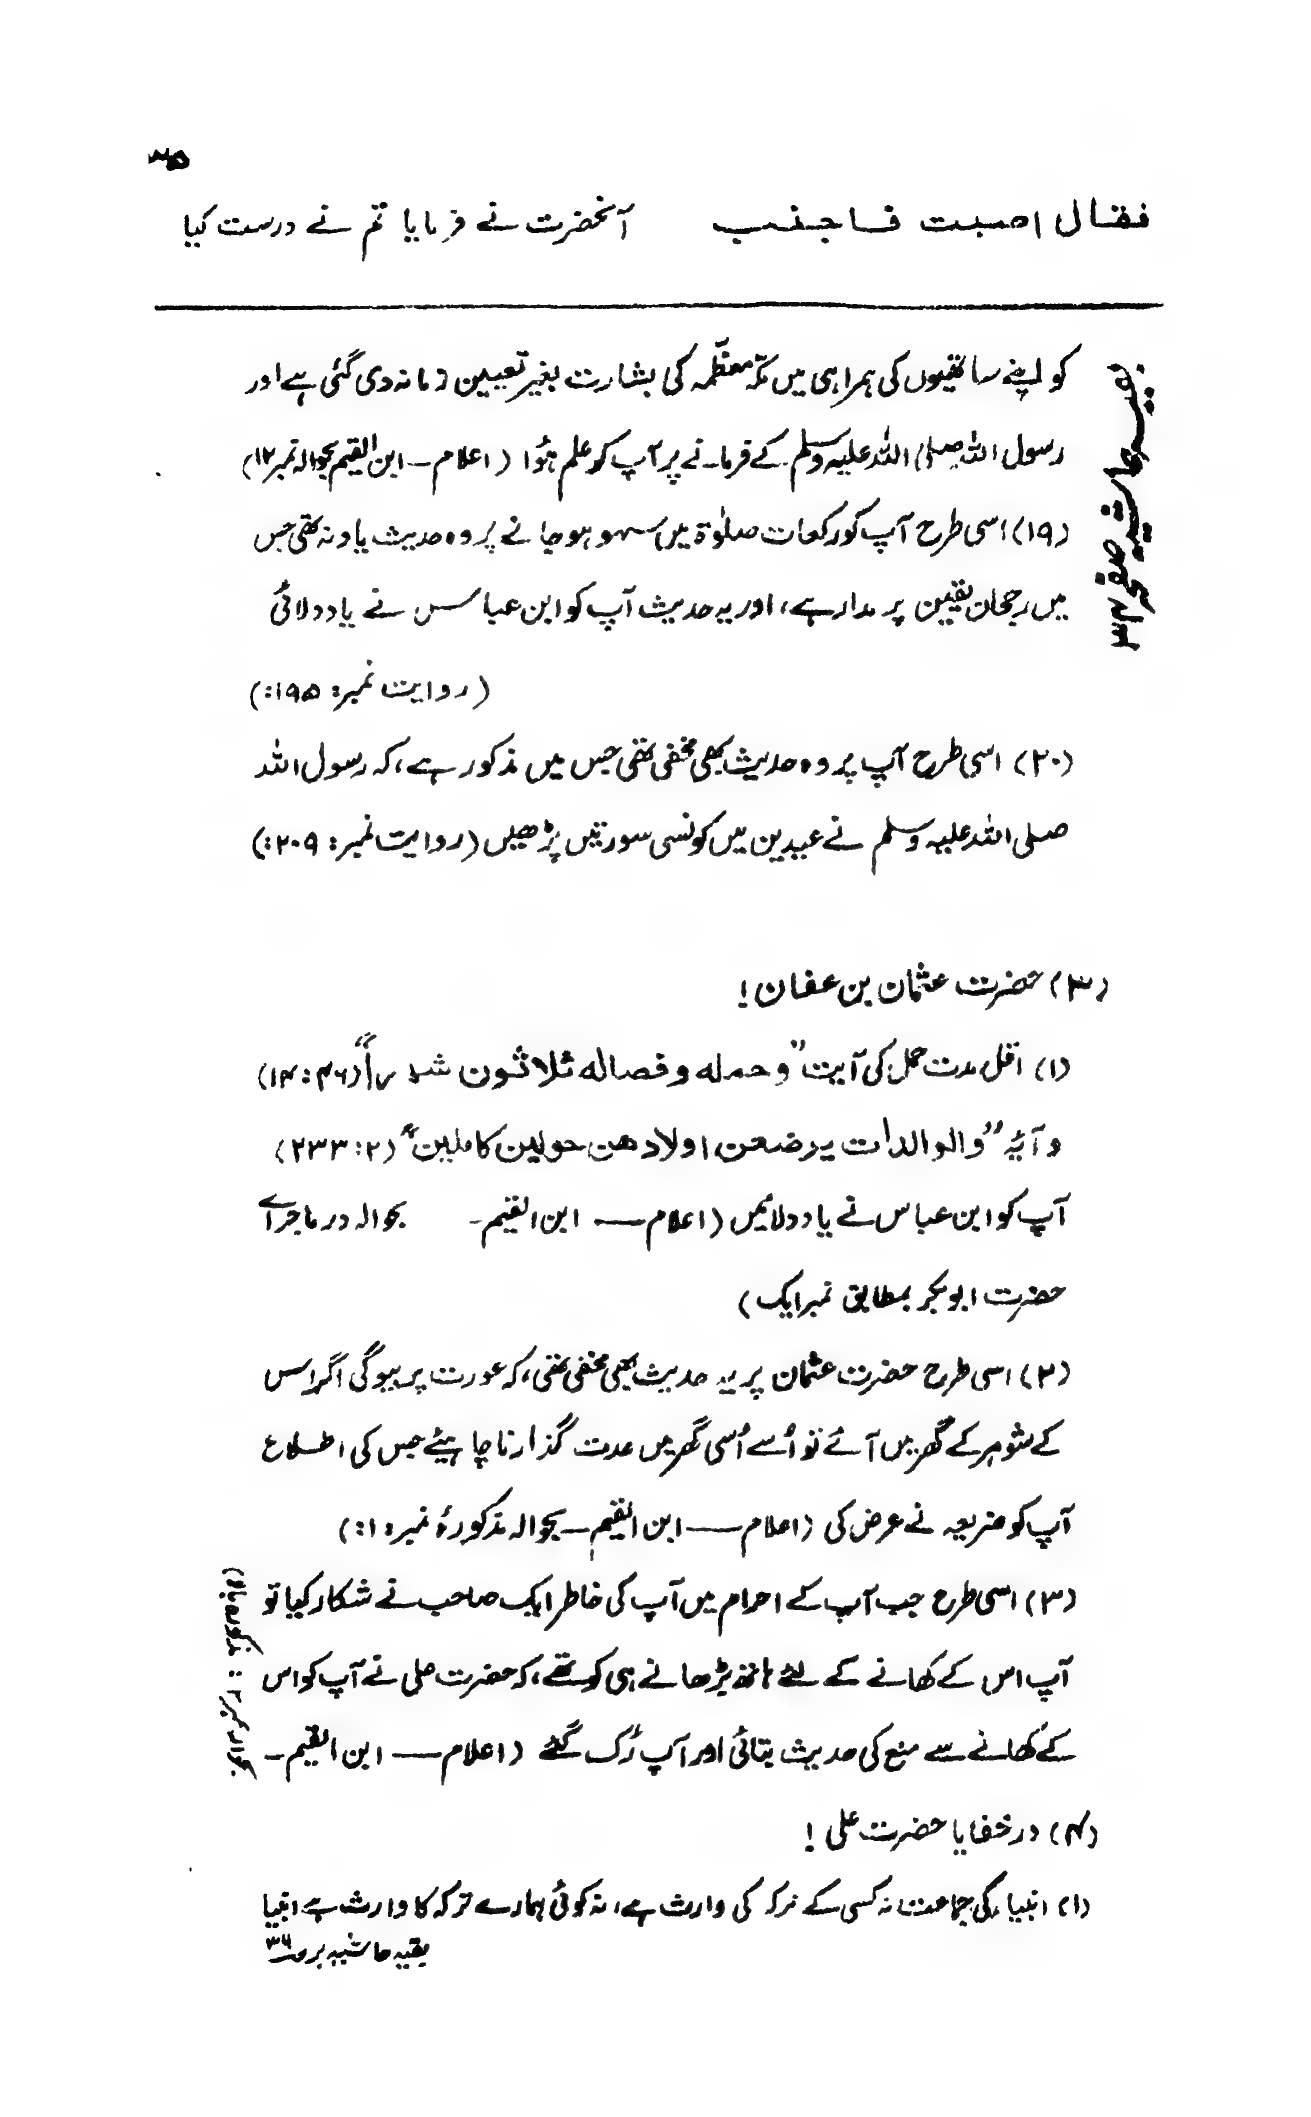 ۳۵
فقال اصبت فاجنب آنحضرت نے فرمایا تم نے درست کیا
بقیہ حاشیہ صفحہ ۳۴
کو اپنے ساتھیوں کی ہمراہی میں مکّہ معظّمہ کی بشارت بغیر تعیین زمانہ دی گئی ہے اور
رسول اللہ صلی اللہ علیہ وسلم کے فرمانے پر آپ کو علم ہؤا (اعلام — ابن القیم بحوالہ نمبر ۱۲)
(۱۹) اسی طرح آپ کو رکعات صلٰوۃ میں سہو ہو جانے پر وہ حدیث یاد نہ تھی جس
میں رجحان یقین پر مدار ہے، اور یہ حدیث آپ کو ابن عباس نے یاد دلائی
(روایت نمبر: ۱۹۵:)
(۲۰) اسی طرح آپ پر وہ حدیث بھی مخفی تھی جس میں مذکور ہے، کہ رسول اللہ
صلی اللہ علیہ وسلم نے عیدین میں کونسی سورتیں پڑھیں (روایت نمبر: ۲۰۹:)
(۳) حضرت عثمان بن عفان!
(۱) اقل مدت حمل کی آیت "وحمله وفصاله ثلاثون شهراً" (۱۴:۴۶)
و آیۂ "والوالدات يرضعن اولادهن حولين كاملين" (۲۳۳:۲)
آپ کو ابن عباس نے یاد دلائیں (اعلام — ابن القیم - بحوالہ در ماجرائے
حضرت ابوبکر بمطابق نمبر ایک)
(۲) اسی طرح حضرت عثمان پر یہ حدیث بھی مخفی تھی، کہ عورت پر بیوگی اگر اس
کے شوہر کے گھر میں آئے تو اُسے اُسی گھر میں عدت گذارنا چاہیئے جس کی اطلاع
آپ کو فریعہ نے عرض کی (اعلام — ابن القیم - بحوالہ مذکورۂ نمبر: ۱:)
(۳) اسی طرح جب آپ کے احرام میں آپ کی خاطر ایک صاحب نے شکار کیا تو
آپ اس کے کھانے کے لئے ہاتھ بڑھانے ہی کو تھے، کہ حضرت علی نے آپ کو اس
کے کھانے سے منع کی حدیث بتائی اور آپ رُک گئے (اعلام — ابن القیم -
بحوالہ نمبر ۲: مذکورہ بالا)
(۴) در خفایا حضرت علی!
(۱) انبیاء کی جماعت نہ کسی کے ترکہ کی وارث ہے، نہ کوئی ہمارے ترکہ کا وارث ہے انبیا
بقیہ حاشیہ بر صـ ۳۶